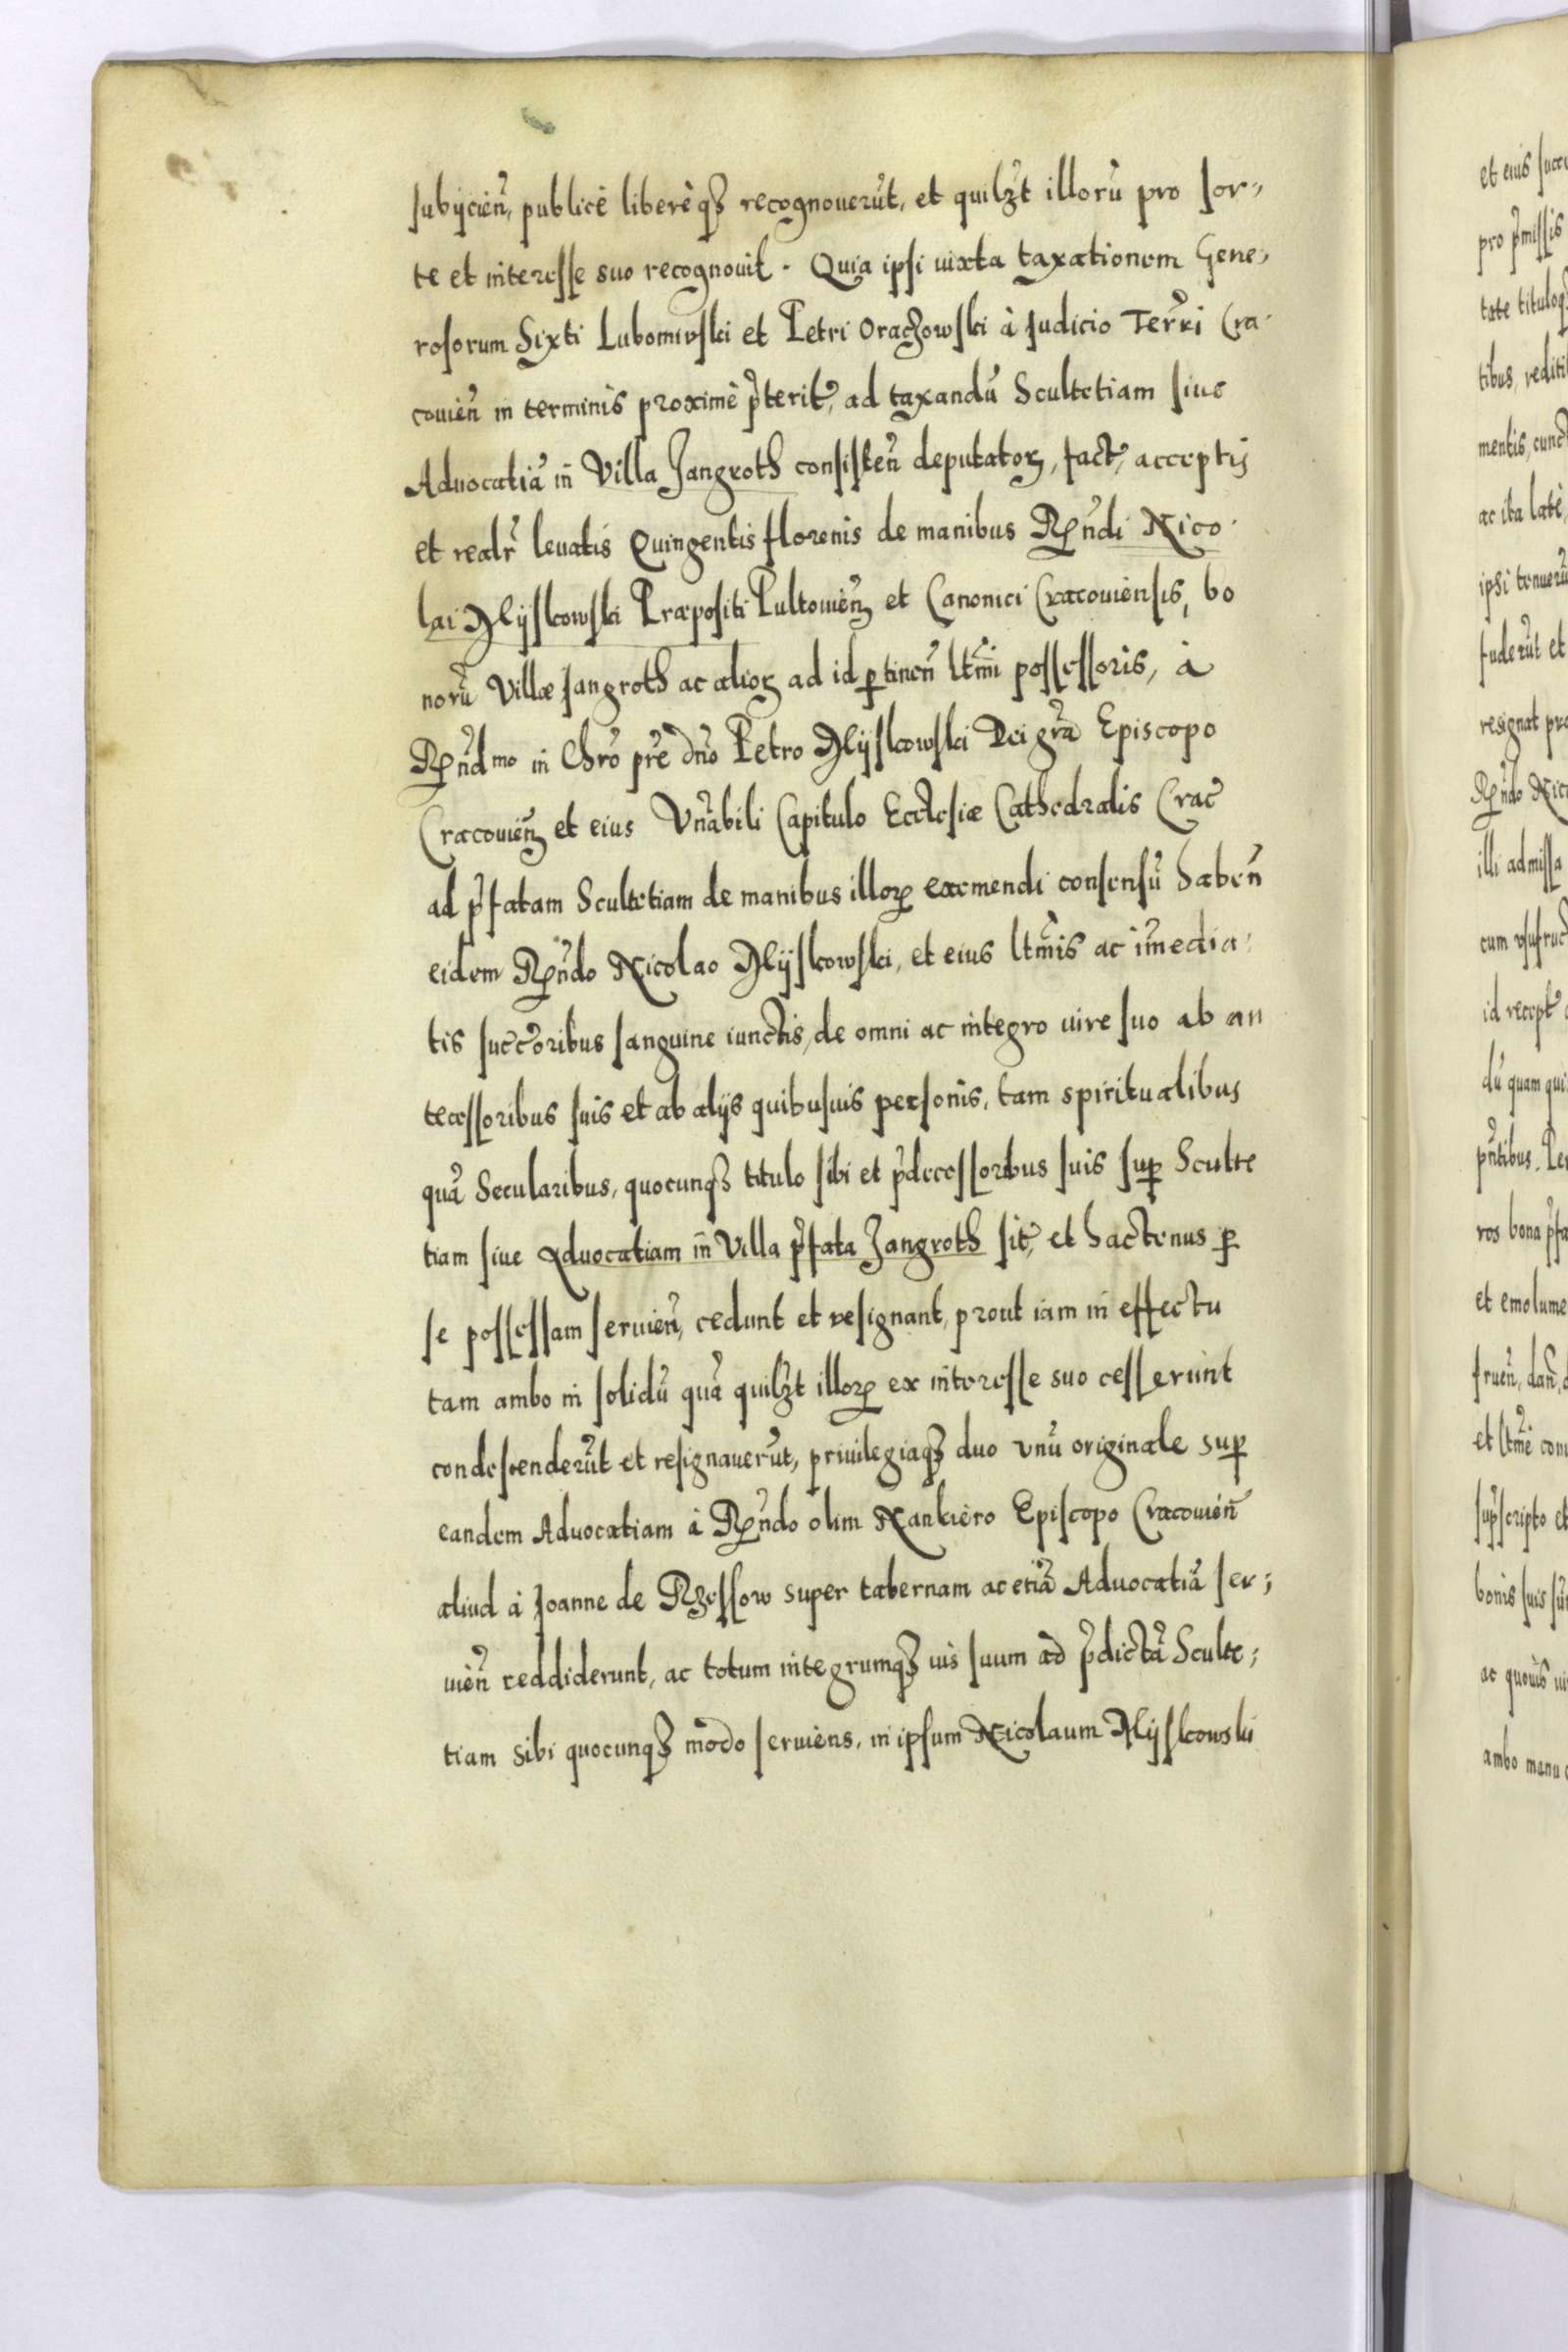 subijcień, publicè liberèqȝ recognouerūt, et quilȝt illorū pro sor,,
te et interesse suo recognouit. Quia ipsi iuxta taxationem Gene,,
rosorum Sixti Lubomirski et Petri Orachowski à Judicio Terrī Cra-
couien̄ in terminis proximè p̄terit̄, ad taxandū Scultetiam siue
Aduocatiā in Villa Jangroth consisten̄ deputatoꝝ, fact̄, acceptis
et realr̄ leuatis Quingentis florenis de manibus Rn̄di Nico-
lai Myskowski Præpositi Pultouien̄ et Canonici Cracouiensis, bo
norū Villæ Jangroth ac alioꝝ ad id ꝑtinen̄ ltm̄i possessoris, à
Rn̄dmo in Chrō prē dn̄o Petro Myskowski Dei grā Episcopo
Cracouien̄ et eius Vn̄abili Capitulo Ecclesiæ Cathedralis Crac̄
ad p̄fatam Scultetiam de manibus illoꝝ exemendi consensū haben̄
eidem Rn̄do Nicolao Myskowski, et eius ltm̄is ac im̄edia-
tis succ̄oribus sanguine iunctis, de omni ac integro iure suo ab an
tecessoribus suis et ab alijs quibusuis personis, tam spiritualibus
quā Secularibus, quocunqȝ titulo sibi et p̄decessoribus suis suꝑ Sculte
tiam siue Aduocatiam in Villa p̄fata Jangroth sit̄, et hactenus ꝑ
se possessam seruien̄, cedunt et resignant, prout iam in effectu
tam ambo in solidū quā quilȝt illoꝝ ex interesse suo cesserunt
condescenderūt et resignauerūt, priuilegiaqȝ duo vnū originale suꝑ
eandem Aduocatiam à Rn̄do olim Nankiero Episcopo Cracouien̄
aliud à Joanne de Rzessow super tabernam ac etiā Aduocatiā ser;
uien̄ reddiderunt, ac totum integrumqȝ ius suum ad p̄dictā Sculte;
tiam sibi quocunqȝ modo seruiens, in ipsum Nicolaum Myskowski